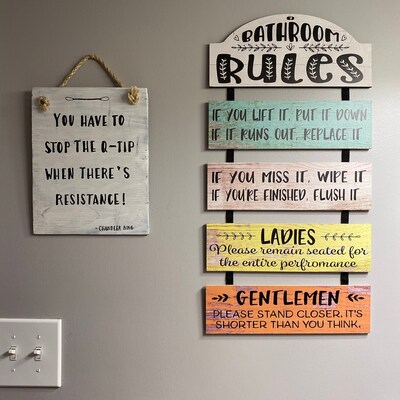 YOU HAVE TO
STOP THE Q-TIP
WHEN THERE'S
RESISTANCE!
- CHANDLER BING
BATHROOM
RULES
IF YOU LIFT IT, PUT IT DOWN
IF IT RUNS OUT, REPLACE IT
IF YOU MISS IT, WIPE IT
IF YOU'RE FINISHED, FLUSH IT
LADIES
Please remain seated for
the entire perfromance
GENTLEMEN
PLEASE STAND CLOSER. IT'S
SHORTER THAN YOU THINK.